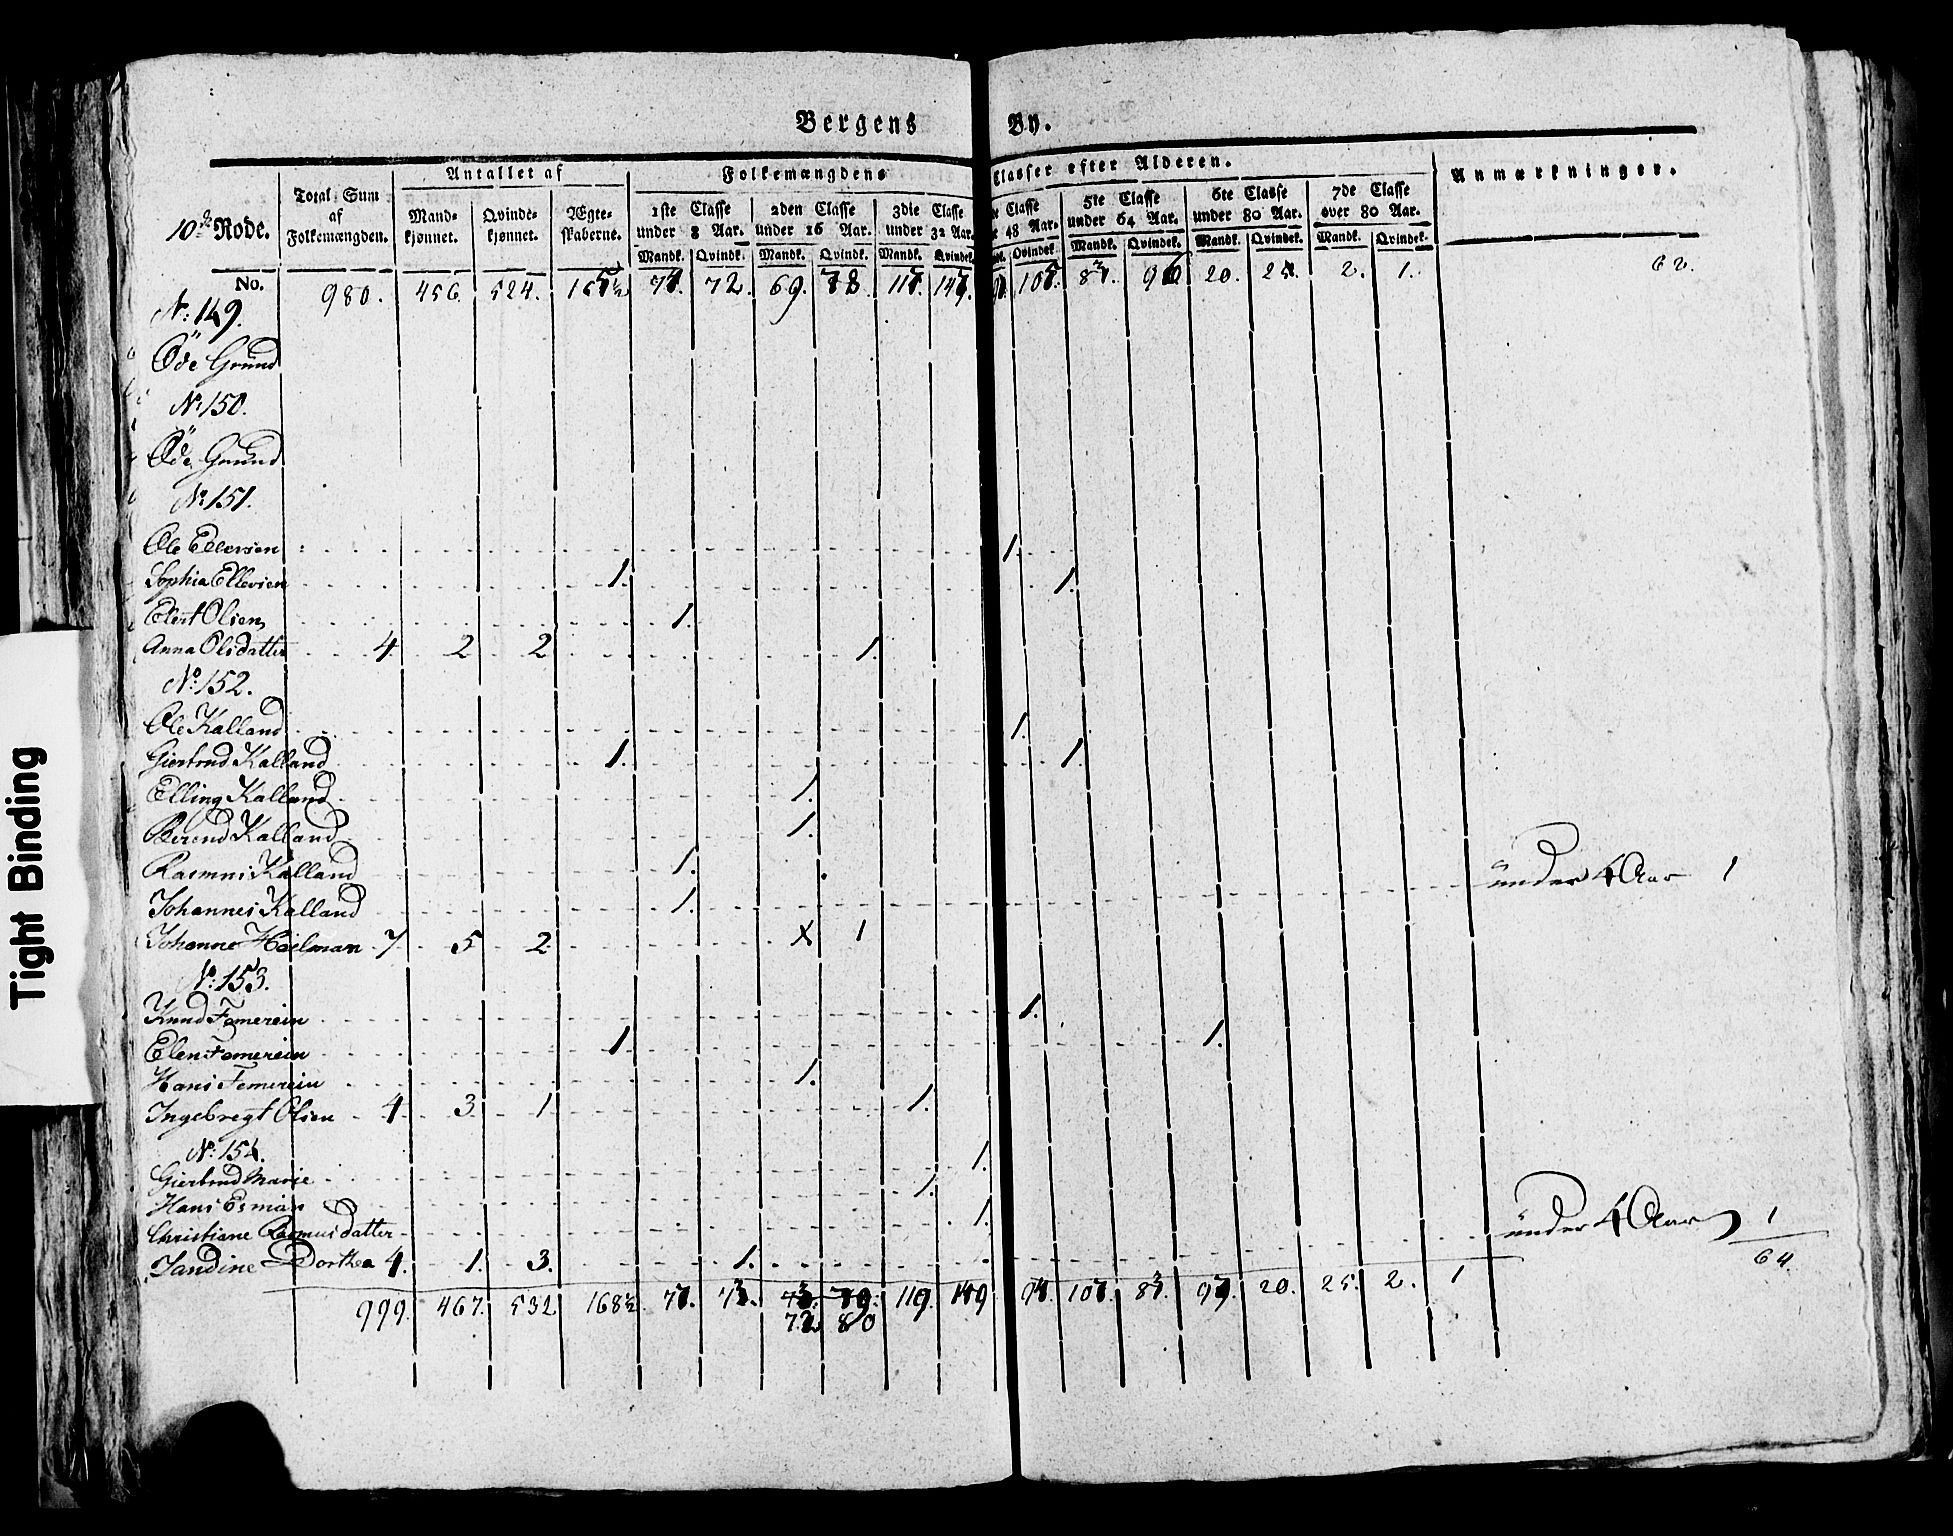 Bergens By.
10de Rode. Total Sum af Folkemængden. Antallet af Folkemængdens Classer efter Alderen. Anmærkninger.
Mandkjønnet. Qvindekjønnet. Ægteskaberne. 1ste Classe under 8 Aar. 2den Classe under 16 Aar. 3die Classe under 32 Aar. Classe 48 Aar. 5te Classe under 64 Aar. 6te Classe under 80 Aar. 7de Classe over 80 Aar.
Mandk. Qvindk. Mandk. Qvindk. Mandk. Qvindk. Qvindek. Mandk. Qvindek. Mandk. Qvindek. Mandk. Qvindek.
No. 980. 456. 524. 72. 69. 78 20. 25. 2. 1. 62.
N: 149.
Öde Grund
N: 150.
Öde Grund
N: 151.
Ole Ellevsen 1.
Sophia Ellevsen 1. 1.
Elert Olsen 1.
Anna Olsdatter 4. 2 2 1.
No: 152.
Ole Kalland 1.
Giertrud Kalland 1. 1.
Elling Kalland 1.
Berend Kalland 1.
Rasmus Kalland 1. under 4 Aar 1
Johannes Kalland 1.
Johanne Heilman 7 5 2 X 1
No: 153.
Knud Femerein 1.
Elen Femerein 1 1.
Hans Femerein 1.
Ingebregt Olsen 4 3 1 1.
N: 154.
Giertrud Marie 1.
Hans Esman 1.
Christiane Rasmusdatter 1.
Jandine Dorthea 4. 1. 3. 1. under 4 Aar 1
64.
999. 467. 532 168½ 119. 149 20. 25. 2. 1
72 80
Tight Binding